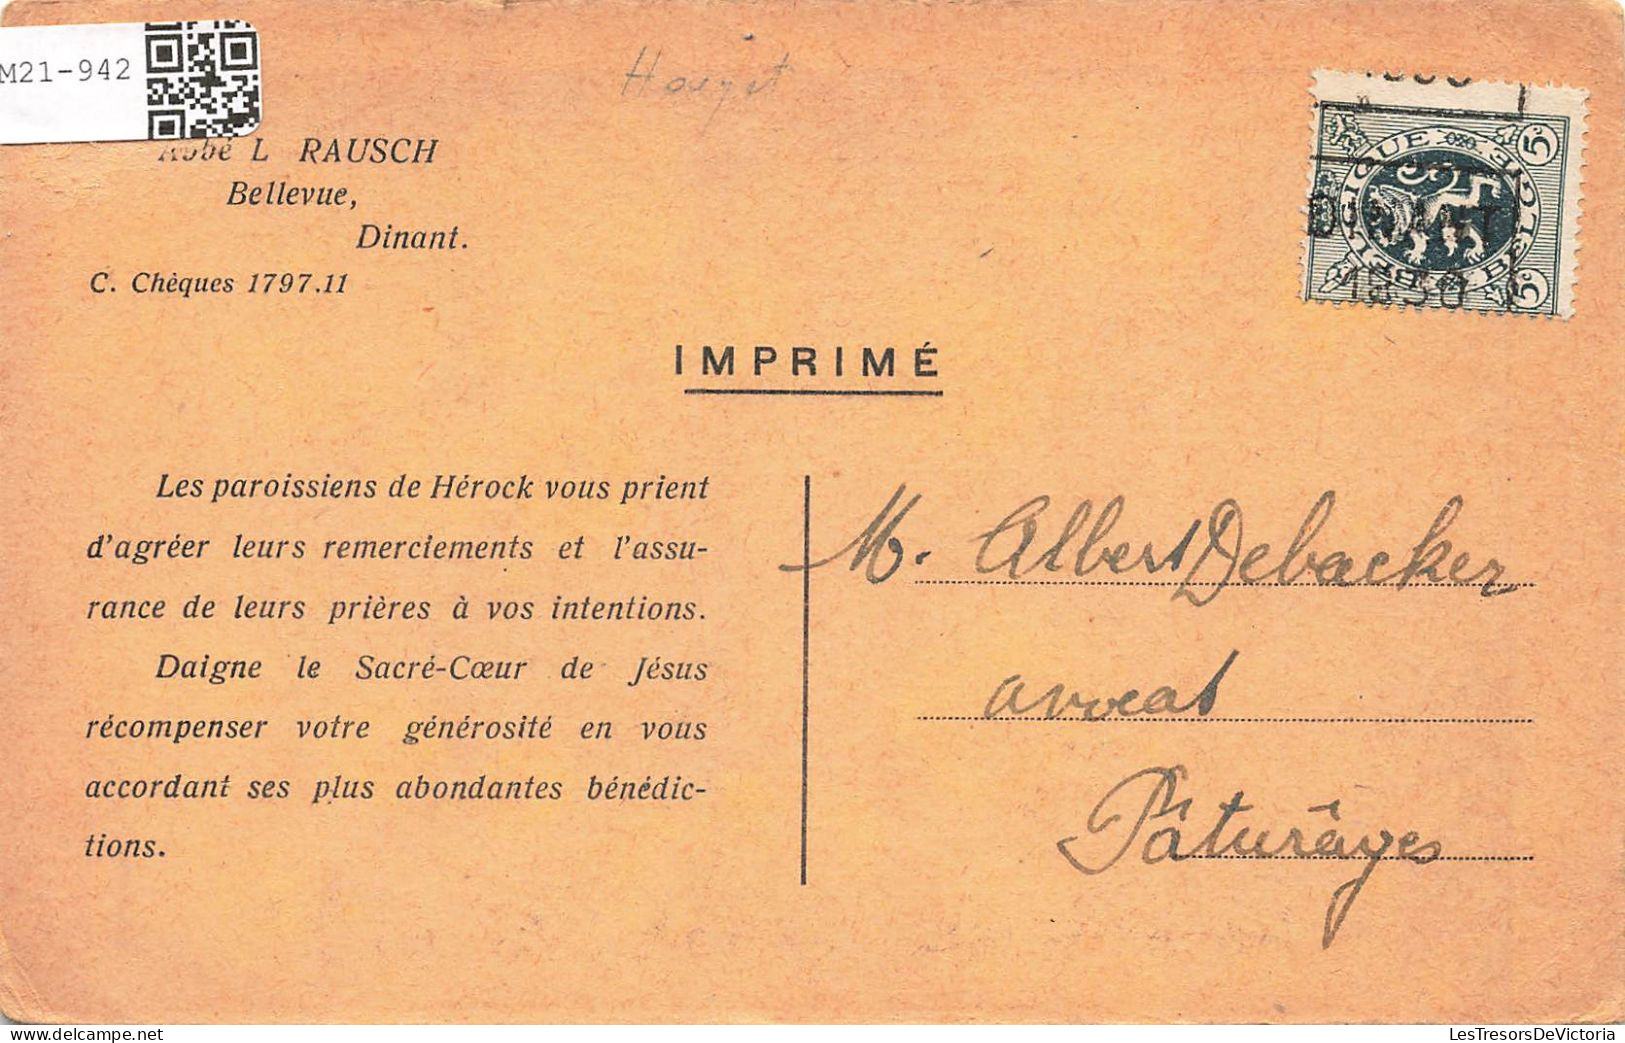 M21-942
Houyet
Abbé L RAUSCH
Bellevue,
Dinant.
C. Chèques 1797.11
BELGIQUE BELGIË
5c
5c
DINANT
1930
IMPRIMÉ
Les paroissiens de Hérock vous prient
d'agréer leurs remerciements et l'assu-
rance de leurs prières à vos intentions.
Daigne le Sacré-Cœur de Jésus
récompenser votre générosité en vous
accordant ses plus abondantes bénédic-
tions.
M. Albert Debacker
avocat
Pâturâges
LesTresorsDeVictoria